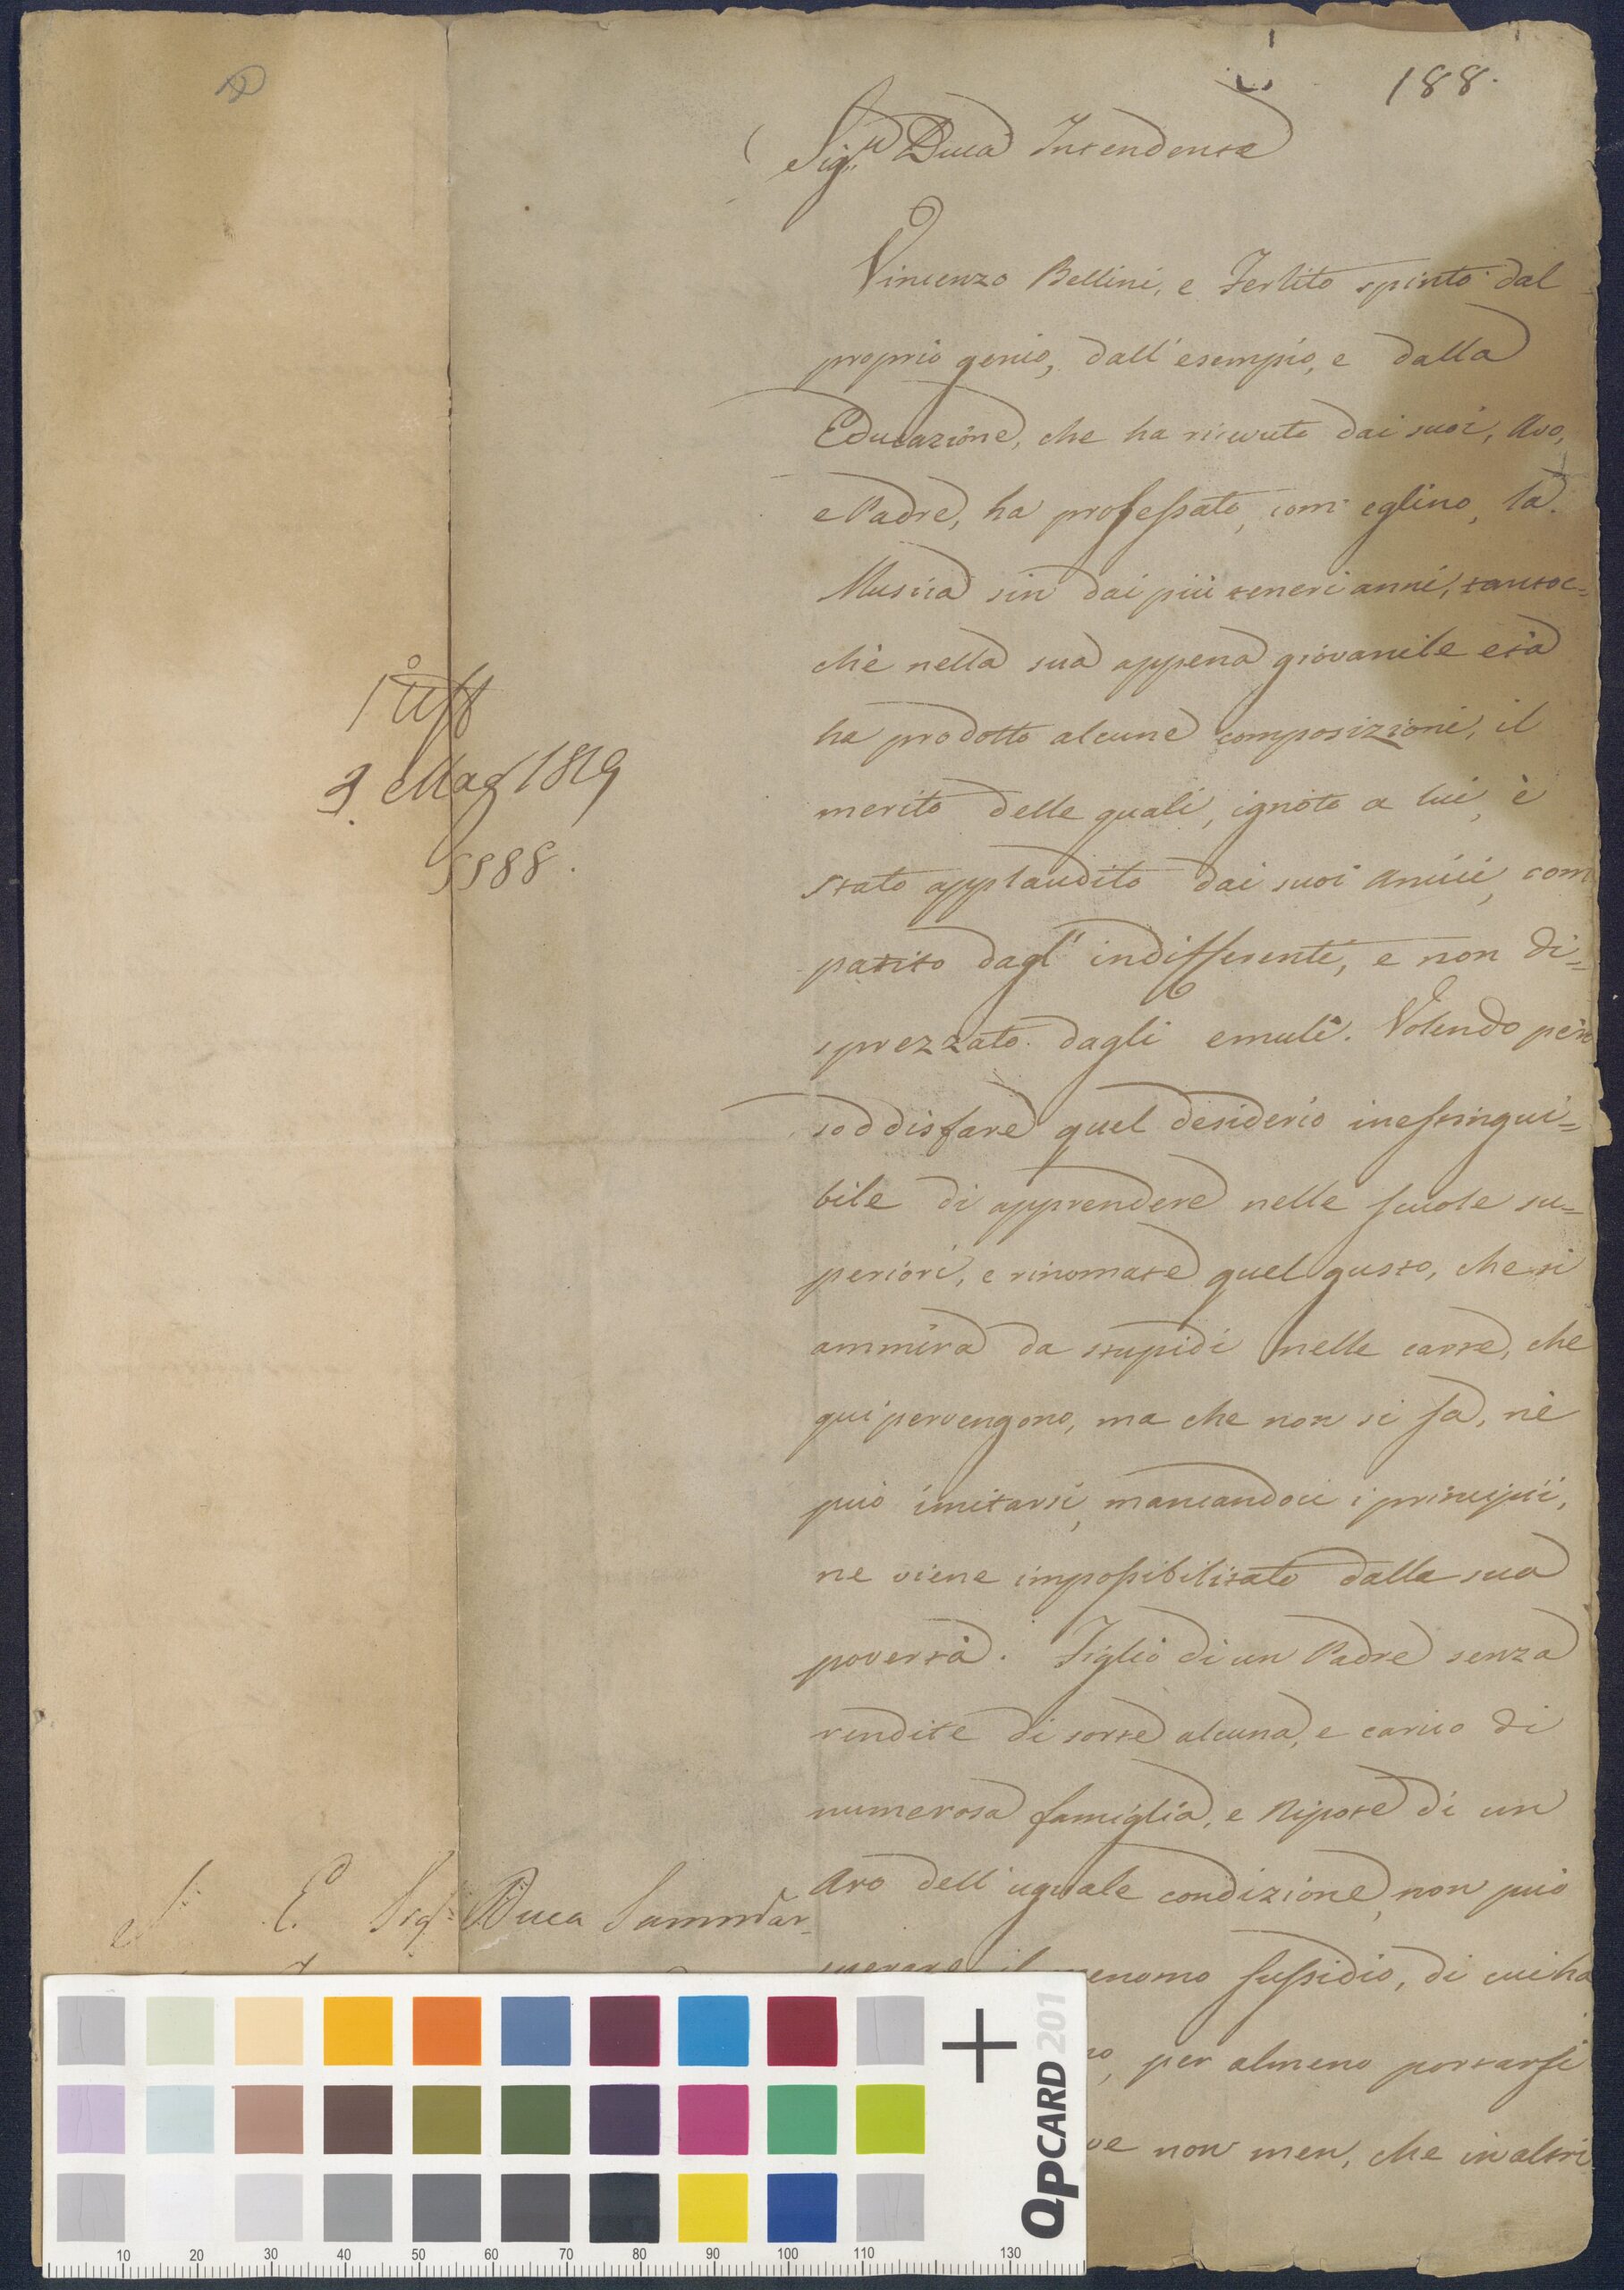 188.
Sig.r Duca Intendente
Vincenzo Bellini, e Ferlito spinto dal
proprio genio, dall'esempio, e dalla
Educazione, che ha ricevuto dai suoi, Avo,
e Padre, ha professato, com' eglino, la
Musica sin dai più teneri anni, tantoc=
chè nella sua appena giovanile età
ha prodotto alcune composizioni, il
merito delle quali, ignoto a lui, è
stato applaudito dai suoi Amici, com
patito dagl' indifferenti, e non di=
sprezzato dagli emuli. Volendo però
soddisfare quel desiderio inestingui=
bile di apprendere nelle scuole su=
periori, e rinomate quel gusto, che si
ammira da stupidi nelle carte, che
qui pervengono, ma che non si sa, nè
può imitarsi, mancandoci i principii,
ne viene impossibilitato dalla sua
povertà. Figlio di un Padre senza
rendite di sorte alcuna, e carico di
numerosa famiglia, e Nipote di un
Avo dell' uguale condizione, non può
sperare il menomo sussidio, di cui ha
per almeno portarsi
non men, che in altri
1° Uff
3 Mag 1819
5988.
S. E. Sig.r Duca Sammar-
10 20 30 40 50 60 70 80 90 100 110 130
QPCARD 201